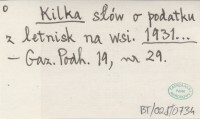 o Kilka słów o podatku
z letnisk na wsi. 1931...
– Gaz. Podh. 19, nr 29.
BT/002/0734